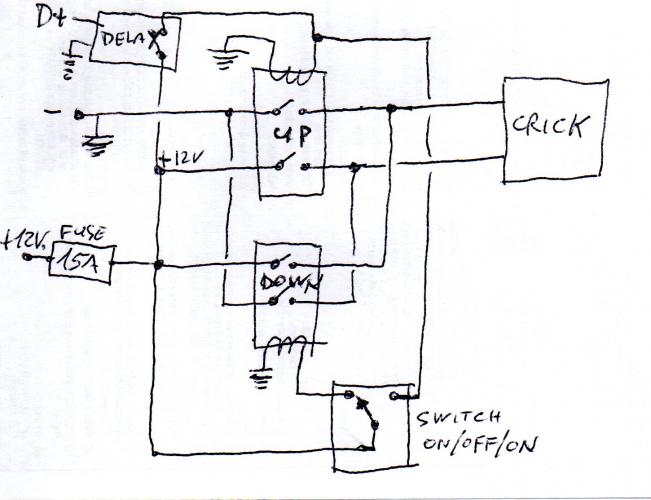 D+
DELAY
-
UP
CRICK
+12V
+12V
FUSE
15A
DOWN
SWITCH
ON/OFF/ON